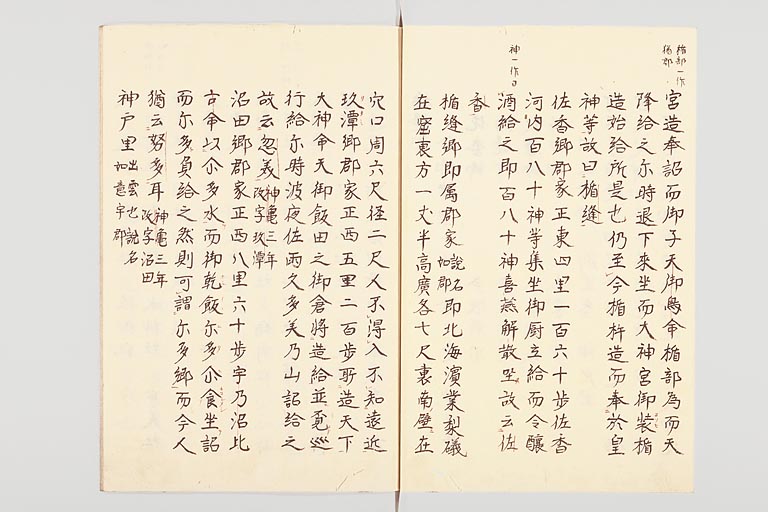 楯部一作
楯郡
宮造奉詔而御子天御鳥命楯部為而天
降給之尓時退下來坐而大神宮御装楯
造始給所是也仍至今楯杵造而奉於皇
神等故曰楯縫
佐香郷郡家正東四里一百六十歩佐香
神一作日
河内百八十神等集坐御厨立給而令釀
酒給之即百八十神喜燕解散坐故云佐
香
楯縫郷即属郡家説名如郡即北海濱業梨礒
在窟裏方一丈半高廣各七尺裏南壁在
穴口周六尺径二尺人不得入不知遠近
玖潭郷郡家正西五里二百歩所造天下
大神命天御飯田之御倉将造給並覓巡
行給尓時波夜佐雨久多美乃山詔給之
故云忽美神亀三年改字玖潭
沼田郷郡家正西八里六十歩宇乃沼比
古命以尓多水而御乾飯尓多尓食坐詔
而尓多負給之然則可謂尓多郷而今人
猶云努多耳神亀三年改字沼田
神戸里出雲也説名如意宇郡